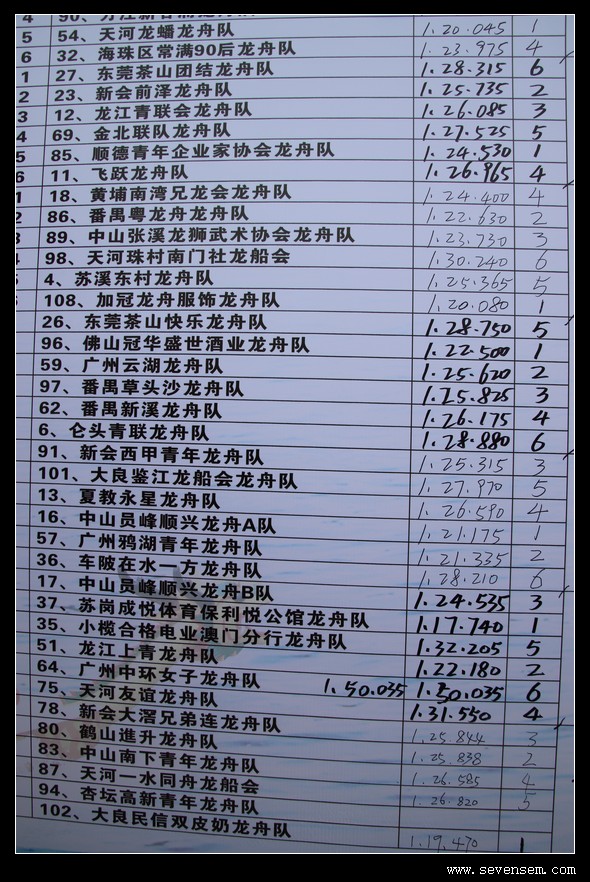 4 90、
5 54、天河龙蟠龙舟队 1.20.045 1
6 32、海珠区常满90后龙舟队 1.23.975 4
1 27、东莞茶山团结龙舟队 1.28.315 6
2 23、新会前泽龙舟队 1.25.735 2
3 12、龙江青联会龙舟队 1.26.085 3
4 69、金北联队龙舟队 1.27.525 5
5 85、顺德青年企业家协会龙舟队 1.24.530 1
6 11、飞跃龙舟队 1.26.965 4
1 18、黄埔南湾兄龙会龙舟队 1.24.400 4
2 86、番禺粤龙舟龙舟队 1.22.630 2
89、中山张溪龙狮武术协会龙舟队 1.23.730 3
98、天河珠村南门社龙船会 1.30.240 6
4、苏溪东村龙舟队 1.25.365 5
108、加冠龙舟服饰龙舟队 1.20.080 1
26、东莞茶山快乐龙舟队 1.28.750 5
96、佛山冠华盛世酒业龙舟队 1.22.500 1
59、广州云湖龙舟队 1.25.620 2
97、番禺草头沙龙舟队 1.25.825 3
62、番禺新溪龙舟队 1.26.175 4
6、仑头青联龙舟队 1.28.880 6
91、新会西甲青年龙舟队 1.25.315 3
101、大良鉴江龙船会龙舟队 1.27.970 5
13、夏教永星龙舟队 1.26.590 4
16、中山员峰顺兴龙舟A队 1.21.175 1
57、广州鸦湖青年龙舟队 1.21.335 2
36、车陂在水一方龙舟队 1.28.210 6
17、中山员峰顺兴龙舟B队 1.24.535 3
37、苏岗成悦体育保利悦公馆龙舟队 1.17.740 1
35、小榄合格电业澳门分行龙舟队 1.32.205 5
51、龙江上青龙舟队 1.22.180 2
64、广州中环女子龙舟队 1.50.035 1.50.035 6
75、天河友谊龙舟队 1.31.550 4
78、新会大滘兄弟连龙舟队 1.25.844 3
80、鹤山進升龙舟队 1.25.838 2
83、中山南下青年龙舟队 1.26.585 4
87、天河一水同舟龙船会 1.26.820 5
94、杏坛高新青年龙舟队
102、大良民信双皮奶龙舟队 1.19.470 1
www.sevensem.com